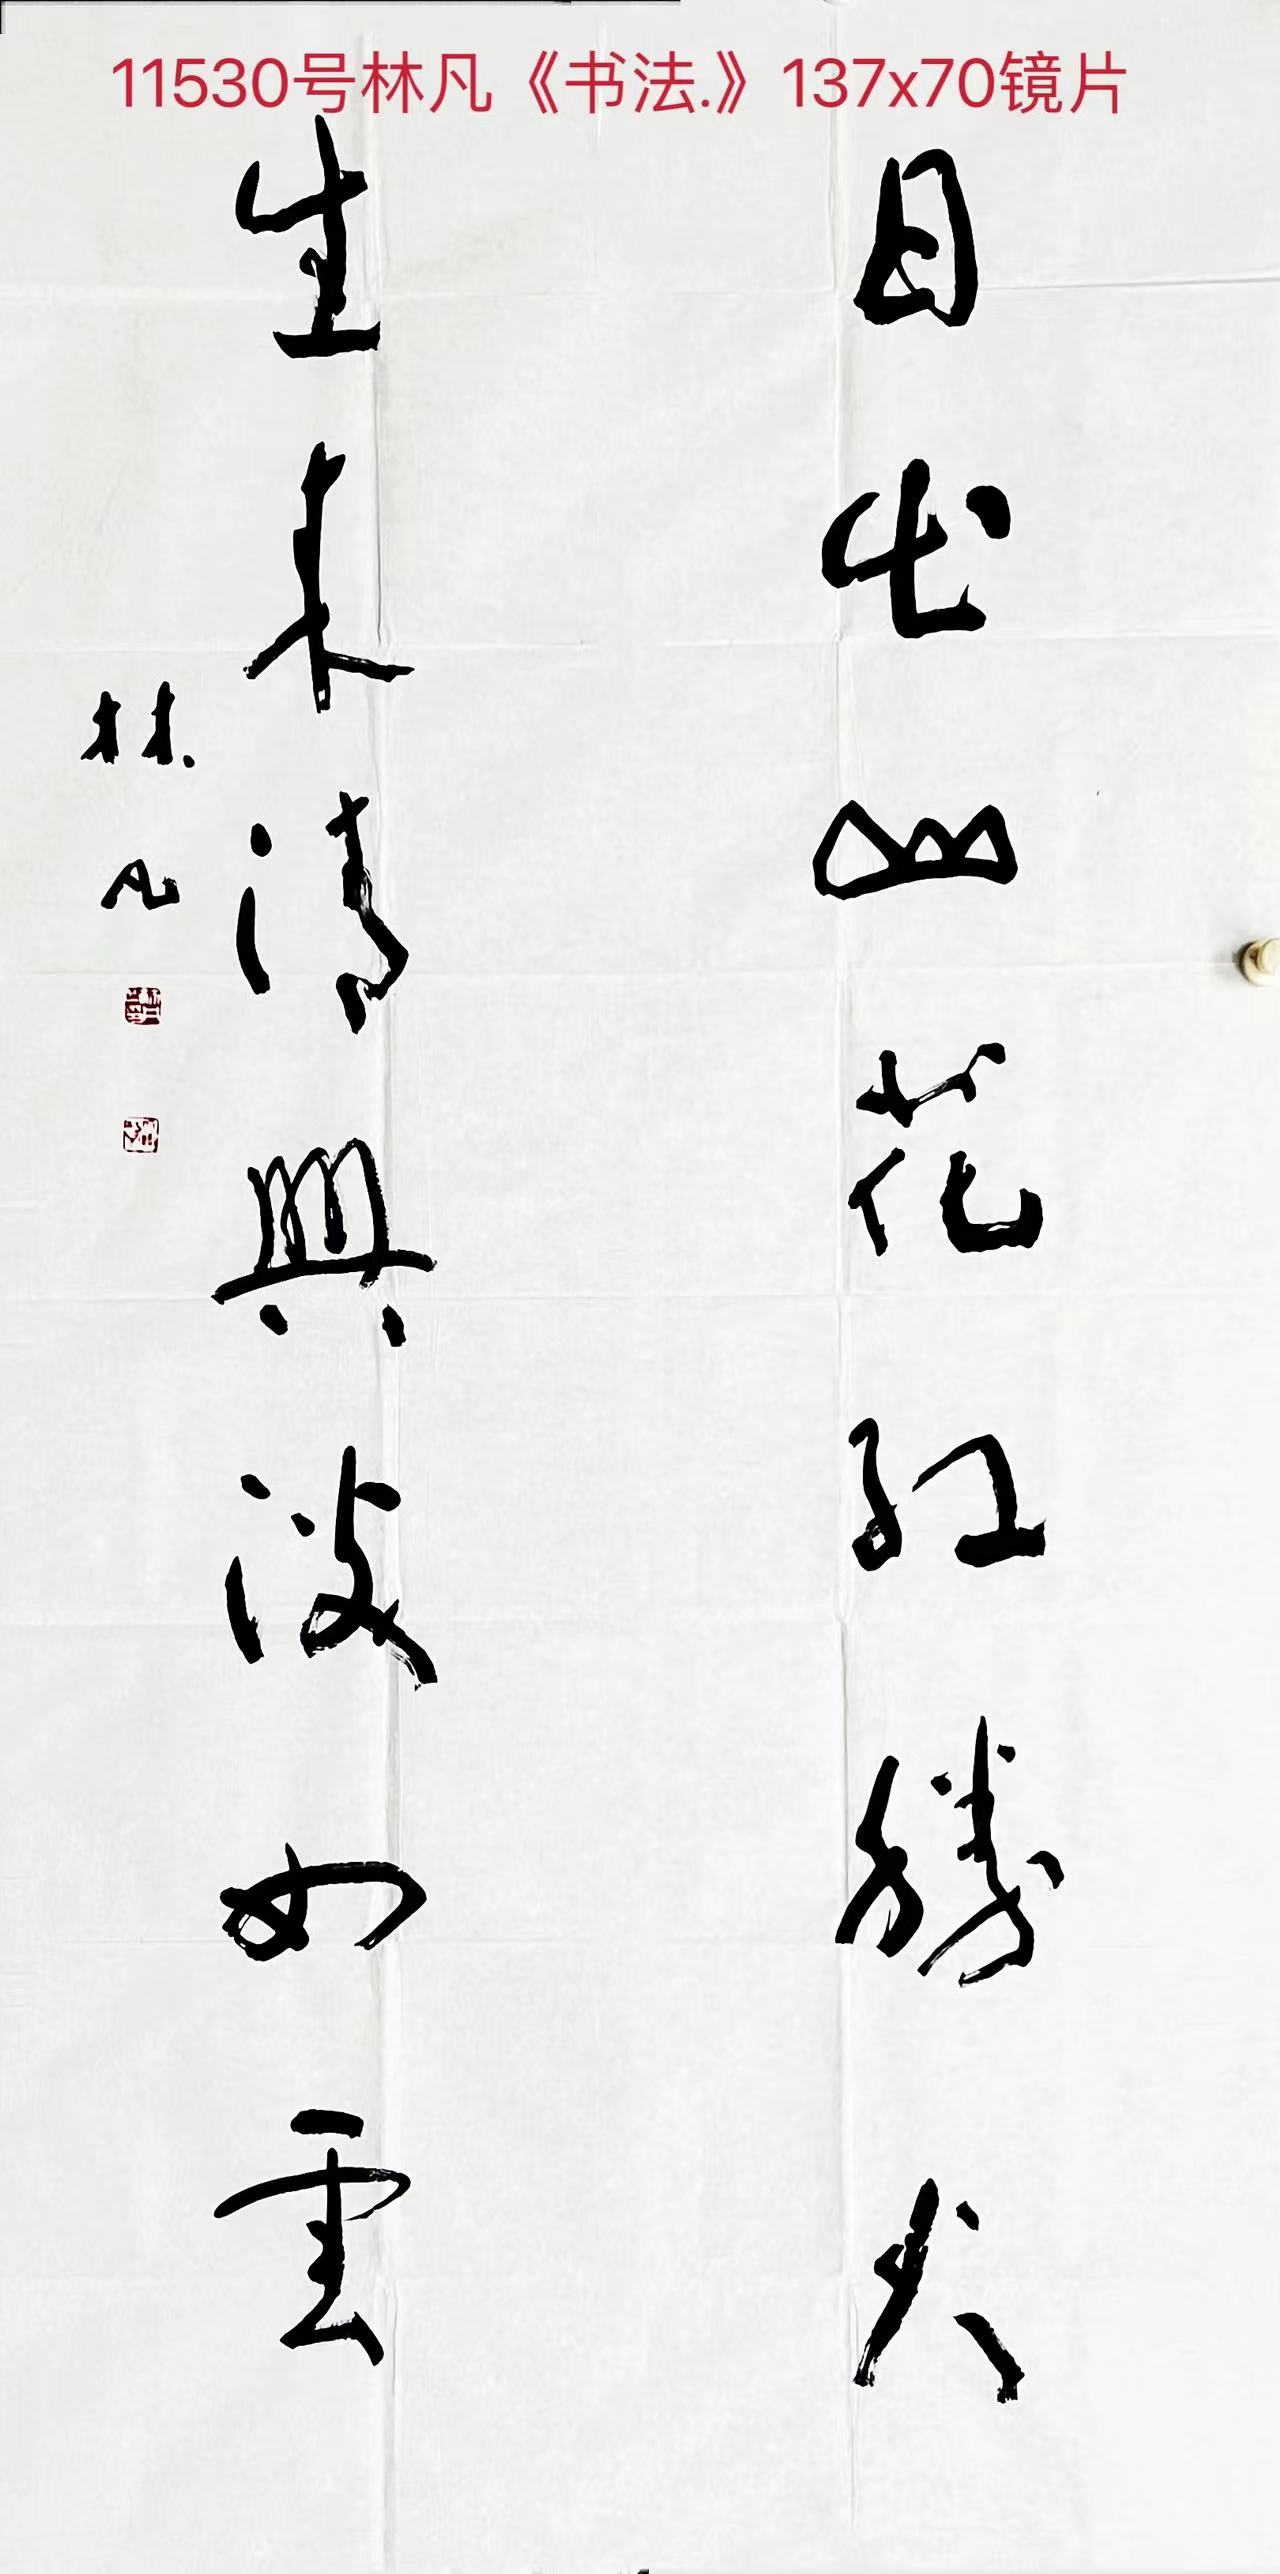 11530号林凡《书法.》137x70镜片
日出山花红勝火
生来清興淡如雲
林凡